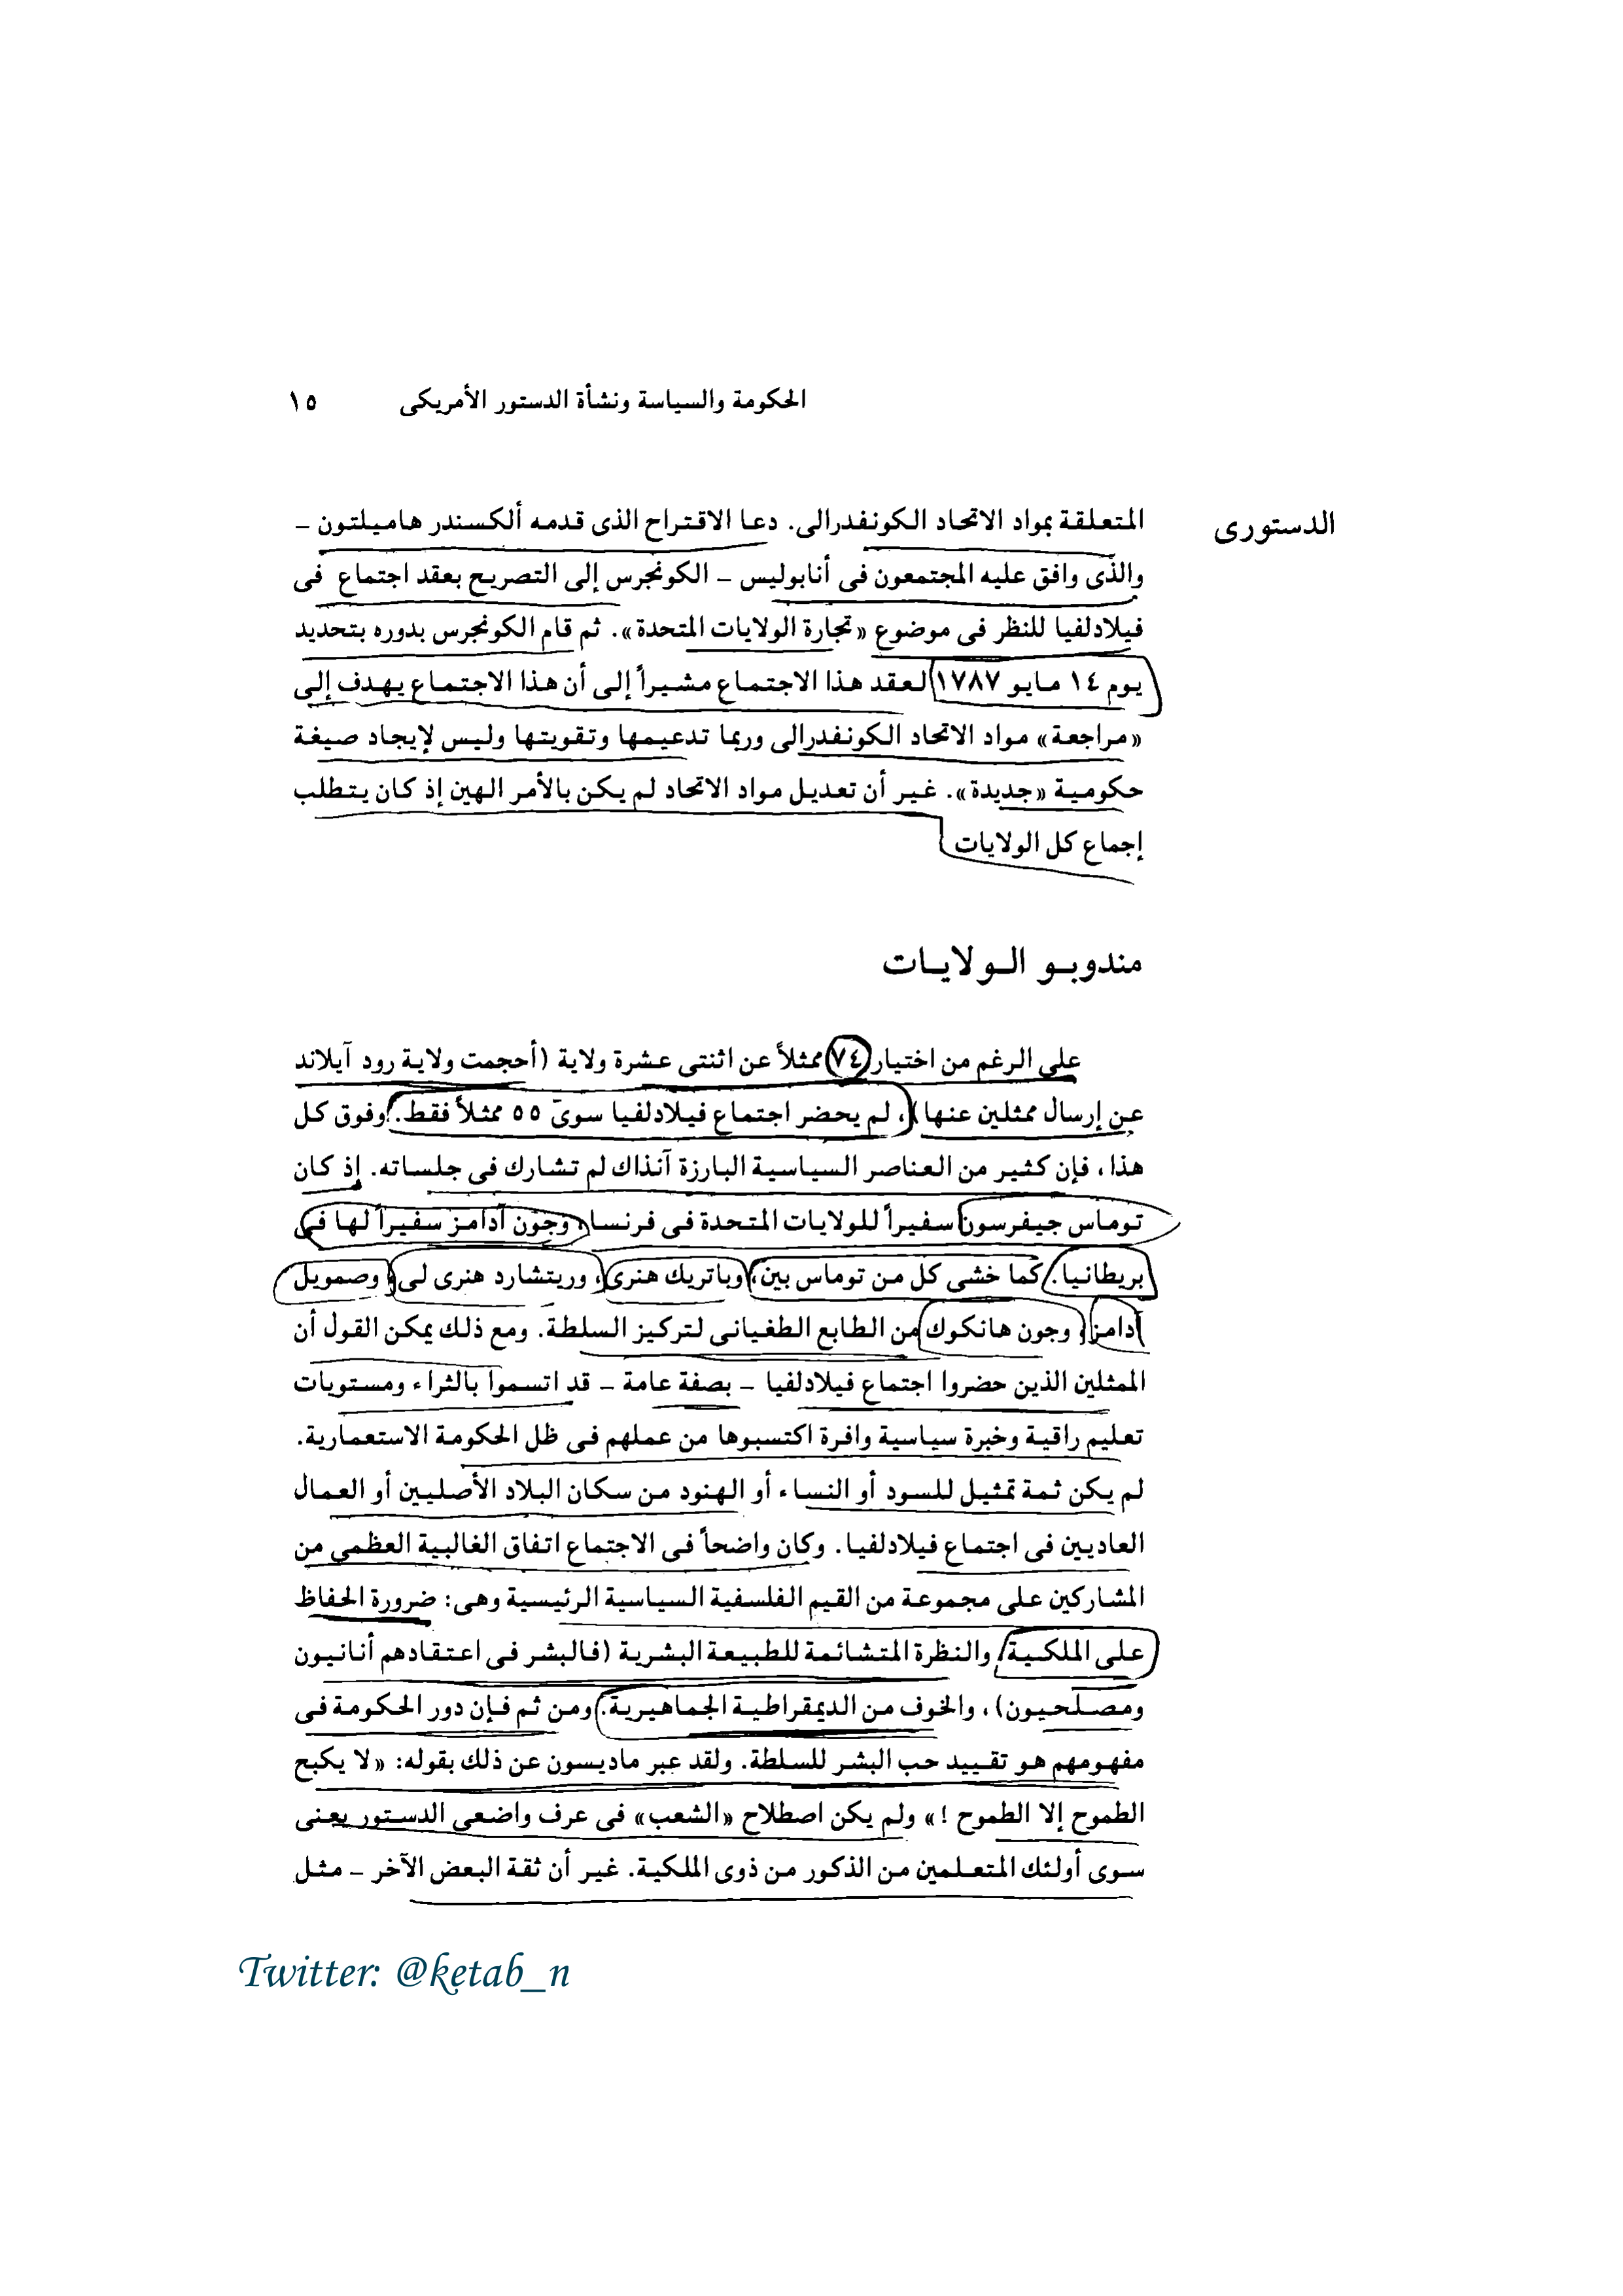 الحكومة والسياسة ونشأة الدستور الأمريكى ١٥
الدستورى
المتعلقة بمواد الاتحاد الكونفدرالى. دعا الاقتراح الذى قدمه ألكسندر هاميلتون –
والذى وافق عليه المجتمعون فى أنابوليس – الكونجرس إلى التصريح بعقد اجتماع فى
فيلادلفيا للنظر فى موضوع «تجارة الولايات المتحدة». ثم قام الكونجرس بدوره بتحديد
يوم ١٤ مايو ١٧٨٧ لعقد هذا الاجتماع مشيراً إلى أن هذا الاجتماع يهدف إلى
«مراجعة» مواد الاتحاد الكونفدرالى وربما تدعيمها وتقويتها وليس لإيجاد صيغة
حكومية «جديدة». غير أن تعديل مواد الاتحاد لم يكن بالأمر الهين إذ كان يتطلب
إجماع كل الولايات
مندوبو الولايات
على الرغم من اختيار ٧٤ ممثلاً عن اثنتى عشرة ولاية (أحجمت ولاية رود آيلاند
عن إرسال ممثلين عنها)، لم يحضر اجتماع فيلادلفيا سوى ٥٥ ممثلاً فقط. وفوق كل
هذا، فإن كثير من العناصر السياسية البارزة آنذاك لم تشارك فى جلساته. إذ كان
توماس جيفرسون سفيراً للولايات المتحدة فى فرنسا، وجون آدامز سفيراً لها فى
بريطانيا. كما خشى كل من توماس بين، وباتريك هنرى، وريتشارد هنرى لى، وصمويل
آدامز، وجون هانكوك من الطابع الطغيانى لتركيز السلطة. ومع ذلك يمكن القول أن
الممثلين الذين حضروا اجتماع فيلادلفيا – بصفة عامة – قد اتسموا بالثراء ومستويات
تعليم راقية وخبرة سياسية وافرة اكتسبوها من عملهم فى ظل الحكومة الاستعمارية.
لم يكن ثمة تمثيل للسود أو النساء أو الهنود من سكان البلاد الأصليين أو العمال
العاديين فى اجتماع فيلادلفيا. وكان واضحاً فى الاجتماع اتفاق الغالبية العظمى من
المشاركين على مجموعة من القيم الفلسفية السياسية الرئيسية وهى: ضرورة الحفاظ
على الملكية، والنظرة المتشائمة للطبيعة البشرية (فالبشر فى اعتقادهم أنانيون
ومصلحيون)، والخوف من الديمقراطية الجماهيرية. ومن ثم فإن دور الحكومة فى
مفهومهم هو تقييد حب البشر للسلطة. ولقد عبر ماديسون عن ذلك بقوله: «لا يكبح
الطموح إلا الطموح !» ولم يكن اصطلاح «الشعب» فى عرف واضعى الدستور يعنى
سوى أولئك المتعلمين من الذكور من ذوى الملكية. غير أن ثقة البعض الآخر – مثل
Twitter: @ketab_n